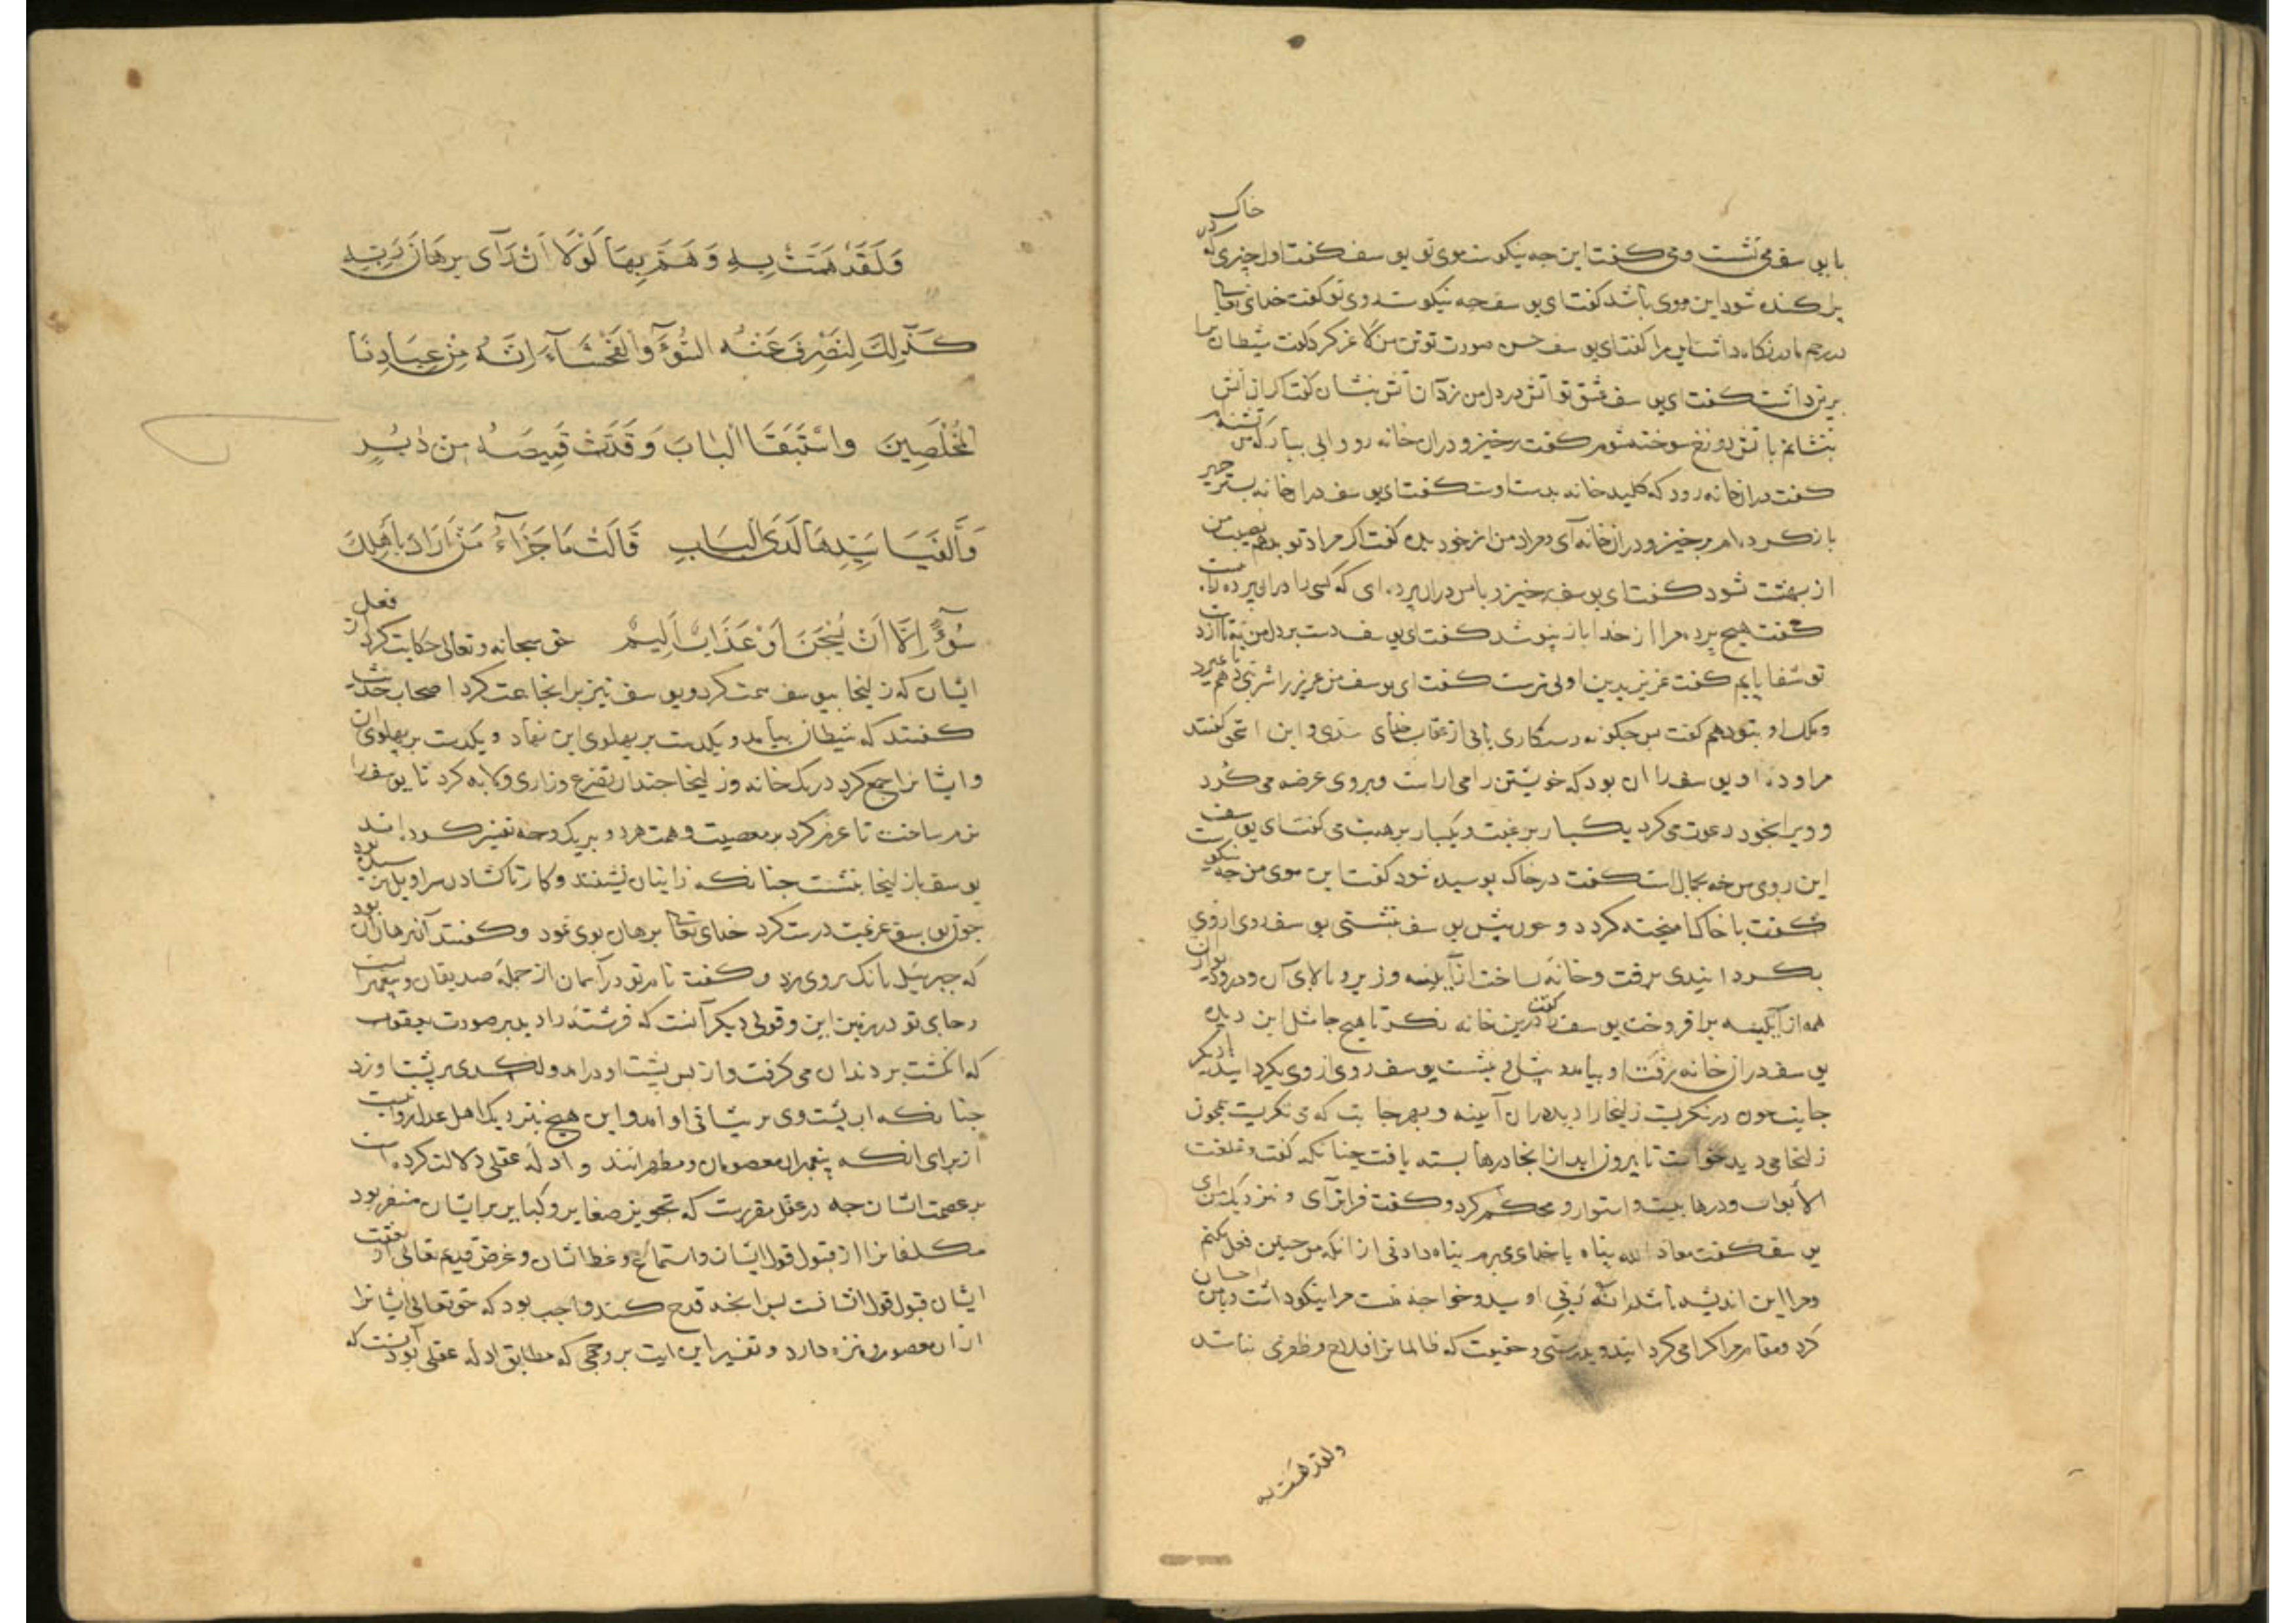 خاک
با یوسف می نشست و می گفت این چه نیکوست موی تو یوسف گفت اول چیزی که در
پراکنده شود این موی باشد گفت ای یوسف چه نیکوست روی تو گفت خدای تعالی
در رحم مادر نگاه داشت این مرا گفت ای یوسف حسن صورت تو تن من لاغر کرد گفت شیطان ترا
برین داشت گفت ای یوسف عشق تو آتش در دل من زد آن آتش بنشان گفت اگر آن آتش
بنشانم باتش دوزخ سوخته شوم گفت برخیز و در ان خانه رو و ابی بیار که من تشنه ام
گفت در ان خانه رود که کلید خانه بدست اوست گفت ای یوسف در ان خانه بستر حریر
باز کرده ام برخیز و در ان خانه آی و مراد من از خود بده گفت اگر مراد تو بدهم نصیب من
از بهشت شود گفت ای یوسف برخیز و با من در ان پرده ای که کسی ما در ان پرده
گفت هیچ پرده مرا از خدا باز نپوشد گفت ای یوسف دست بر دل من نه تا از دست
تو شفا یابم گفت عزیز بدین اولی ترست گفت ای یوسف من عزیز را شربتی دهم تا بمیرد
و ملک او بتو دهم گفت پس چگونه رستکاری یابی از عقاب خدای و ابن اسحق گفتند
مراوده او یوسف را ان بود که خویشتن را می اراست و بر وی عرضه می کرد
و ویرا بخود دعوت می کرد یکبار برغبت و یکبار برهبت می گفت ای یوسف
این روی من چه بجمال است گفت در خاک بوسیده شود گفت این موی من چه نیکوست
گفت با خاک امیخته گردد و چون پیش یوسف بنشستی یوسف روی از وی
بگردانیدی برفت و خانه ساخت از آبگینه و زیر و بالای آن و در و دیوار ان
همه از آبگینه برافروخت یوسف را گفت درین خانه نگر تا هیچ جا مثل این دیده
یوسف در ان خانه برفت او بیامد پیش وی بنشست یوسف روی از وی بگردانید دیگر
جانب چون در نگریست زلیخا را دید در ان آبینه و بهر جانب که می نگریست همچون
زلیخا می دید خواست تا بیرون اید از انجا درها بسته یافت چنانکه گفت و غلقت
الأبواب و درها ببست و استوار و محکم کرد و گفت فراتر آی و نزدیک من ای
یوسف گفت معاذ الله پناه با خدای می برم پناه دادنی از انکه من چنین فعل بکنم
و مرا این اندیشه باشد انه ربی او سید و خواجه منست مرا نیکو داشت و با من احسان
کرد و مقام مرا گرامی گردانید و بدرستی و حقیقت که ظالمان را فلاح و ظفری نباشد
ولقد همت به
وَلَقَدْ هَمَّتْ بِهِ وَهَمَّ بِهَا لَوْلَا اَنْ رَآى بُرْهَانَ رَبِّهِ
كَذٰلِكَ لِنَصْرِفَ عَنْهُ السُّوٓءَ وَالْفَحْشَآءَ اِنَّهُ مِنْ عِبَادِنَا
الْمُخْلَصِينَ وَاسْتَبَقَا الْبَابَ وَقَدَّتْ قَمِيصَهُ مِنْ دُبُرٍ
وَاَلْفَيَا سَيِّدَهَا لَدَى الْبَابِ قَالَتْ مَا جَزَآءُ مَنْ اَرَادَ بِاَهْلِكَ
سُوٓءًا اِلَّا اَنْ يُسْجَنَ اَوْ عَذَابٌ اَلِيمٌ حق سبحانه و تعالی حکایت کرد از فعل
ایشان که زلیخا بیوسف همت کرد و یوسف نیز بر انجا عت کرد اصحاب حدیث
گفتند که شیطان بیامد و یکدست بر پهلوی این نهاد و یکدست بر پهلوی ان
و ایشانرا جمع کرد در یک خانه و زلیخا چندان تضرع و زاری و لابه کرد تا یوسف را
نرم ساخت تا عزم کرد بر معصیت و همت هردو بر یک وجه تفسیر کرده اند
یوسف با زلیخا بنشست چنانکه زانیان نشینند و کار تا گشادن سراویل رسیده بود
چون یوسف عزیمت درست کرد خدای تعالی برهان بوی نمود و گفتند آن برهان ان بود
که جبرئیل بانک بروی زد و گفت نام تو در آسمان از جمله صدیقان و پیغمبران است
و جای تو در زمین این و قولی دیگر آنست که فرشته را دید بر صورت یعقوب
که انگشت بر دندان می گرفت و از پس پشت او درامد و لگدی بر پشت او زد
چنانکه اب پشت وی بر پیشانی او امد و این هیچ بنزدیک اهل عدل روا نیست
از برای انکه پیغمبران معصومان و مطهرانند و ادله عقلی دلالت کرده است
بر عصمت ایشان چه در عقل مقررست که تجویز صغایر و کبایر بر ایشان منفر بود
مکلفانرا از قبول قول ایشان و استماع وعظ ایشان و غرض قدیم تعالی از بعثت
ایشان قبول قول ایشانست پس انچه قدح کند واجب بود که حق تعالی ایشانرا
از ان معصوم و منزه دارد و تفسیر این ایت بر وجهی که مطابق ادله عقلی بود آنست که